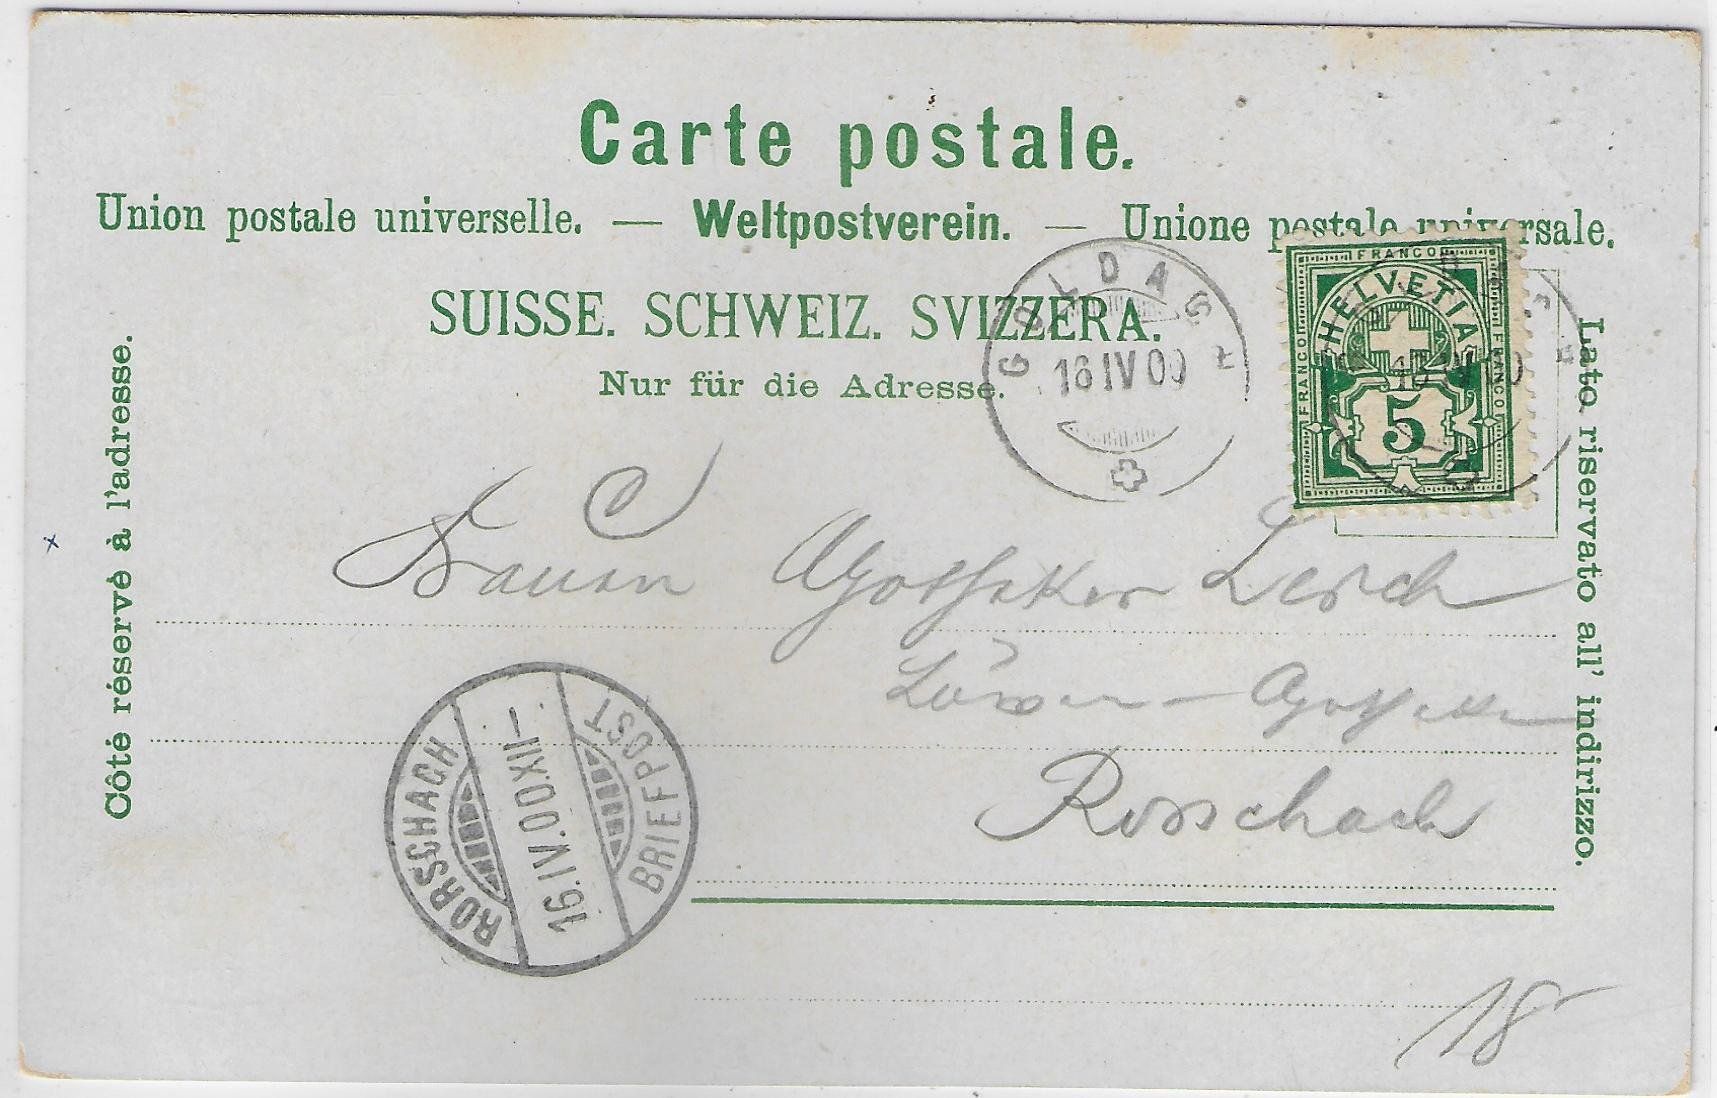 Carte postale.
Union postale universelle. — Weltpostverein. — Unione postale universale.
SUISSE. SCHWEIZ. SVIZZERA.
Nur für die Adresse.
Côté réservé à l'adresse.
Lato riservato all' indirizzo.
GOLDAU
16 IV 00
FRANCO
FRANCO
FRANCO
HELVETIA
5
Apotheker Lerch
Löwen-Apotheke
Rorschach
RORSCHACH
16.IV.00.XII—
BRIEFPOST
18